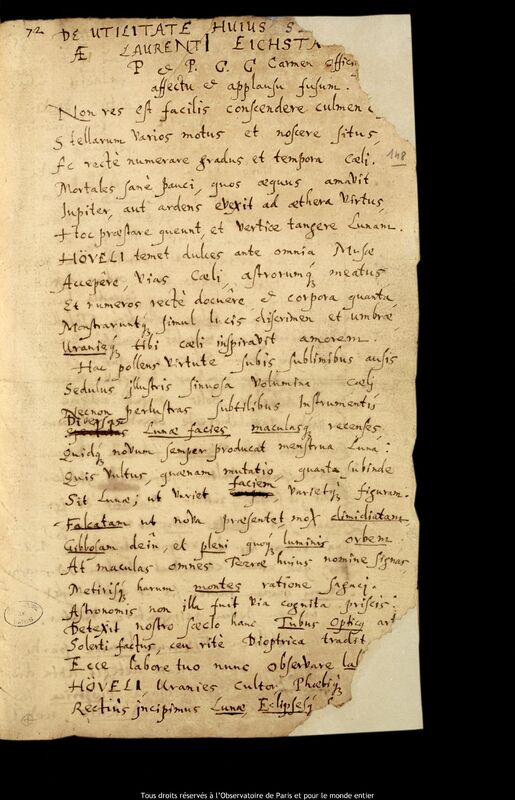 72 DE UTILITATE HUIUS S
Æ LAURENTI EICHSTA
P & P. G. G Carmen
affectu & applausu fusum.
Non res est facilis conscendere culmen
Stellarum varios motus et noscere situs,
Ac rectè numerare gradus et tempora Cœli.
148
Mortales sanè pauci, quos æquus amavit
Jupiter, aut ardens evexit ad æthera virtus,
Hoc præstare queunt, et vertice tangere Lunam.
HÖVELI temet dulces ante omnia Musæ
Accepêre, vias Cœli astrorumq; meatus
Et numeros rectè docuêre & corpora quanta,
Monstraruntq; simul lucis discrimen et umbræ
Uranieq; tibi cæli inspiravit amorem.
Hac pollens virtute subis sublimibus ausis
Sedulus illustris sinuosa volumina Cœlj
Necnon perlustras subtilibus Instrumentis
Diversas
Lunæ facies, maculasq; recenses,
Quidq; novum semper producat menstrua Luna:
Quis vultus, quænam mutatio, quanta subinde
faciem
Sit Lunæ; ut variet varietq; figuram.
Falcatam ut nova præsentet, mox dimidiatam
Gibbosam dein, et pleni quoq; luminis orbem.
At maculas omnes Terræ huius nomine signas
Metirisq; harum montes ratione sagaci.
Astronomis non illa fuit via cognita priscis:
Detexit nostro sæclo hanc Tubus Opticq art
Solerti factus, ceu ritè Dioptrica tradit
Ecce labore tuo nunc observare lab
HÖVELI, Uranies Cultor, Phœbiq;
Rectiùs jncipimus Lunæ, Eclipsesq;
Tous droits réservés à l'Observatoire de Paris et pour le monde entier